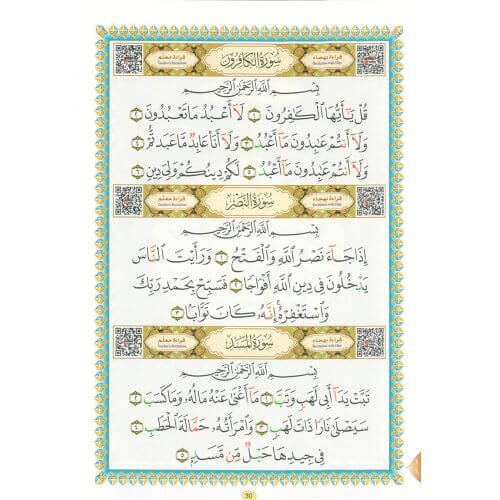 قراءة معلم
Teacher's Recitation
سُورَةُ الكَافِرُونَ
قراءة بهجاء
Recitation with Hija
بِسْمِ اللَّهِ الرَّحْمَٰنِ الرَّحِيمِ
قُلْ يَٰٓأَيُّهَا ٱلْكَٰفِرُونَ ١ لَآ أَعْبُدُ مَا تَعْبُدُونَ ٢
وَلَآ أَنتُمْ عَٰبِدُونَ مَآ أَعْبُدُ ٣ وَلَآ أَنَا۠ عَابِدٌ مَّا عَبَدتُّمْ ٤
وَلَآ أَنتُمْ عَٰبِدُونَ مَآ أَعْبُدُ ٥ لَكُمْ دِينُكُمْ وَلِىَ دِينِ ٦
قراءة معلم
Teacher's Recitation
سُورَةُ النَّصْرِ
قراءة بهجاء
Recitation with Hija
بِسْمِ اللَّهِ الرَّحْمَٰنِ الرَّحِيمِ
إِذَا جَآءَ نَصْرُ ٱللَّهِ وَٱلْفَتْحُ ١ وَرَأَيْتَ ٱلنَّاسَ
يَدْخُلُونَ فِى دِينِ ٱللَّهِ أَفْوَاجًا ٢ فَسَبِّحْ بِحَمْدِ رَبِّكَ
وَٱسْتَغْفِرْهُ ۚ إِنَّهُۥ كَانَ تَوَّابًۢا ٣
قراءة معلم
Teacher's Recitation
سُورَةُ المَسَدِ
قراءة بهجاء
Recitation with Hija
بِسْمِ اللَّهِ الرَّحْمَٰنِ الرَّحِيمِ
تَبَّتْ يَدَآ أَبِى لَهَبٍ وَتَبَّ ١ مَآ أَغْنَىٰ عَنْهُ مَالُهُۥ وَمَا كَسَبَ ٢
سَيَصْلَىٰ نَارًا ذَاتَ لَهَبٍ ٣ وَٱمْرَأَتُهُۥ حَمَّالَةَ ٱلْحَطَبِ ٤
فِى جِيدِهَا حَبْلٌ مِّن مَّسَدٍۭ ٥
50